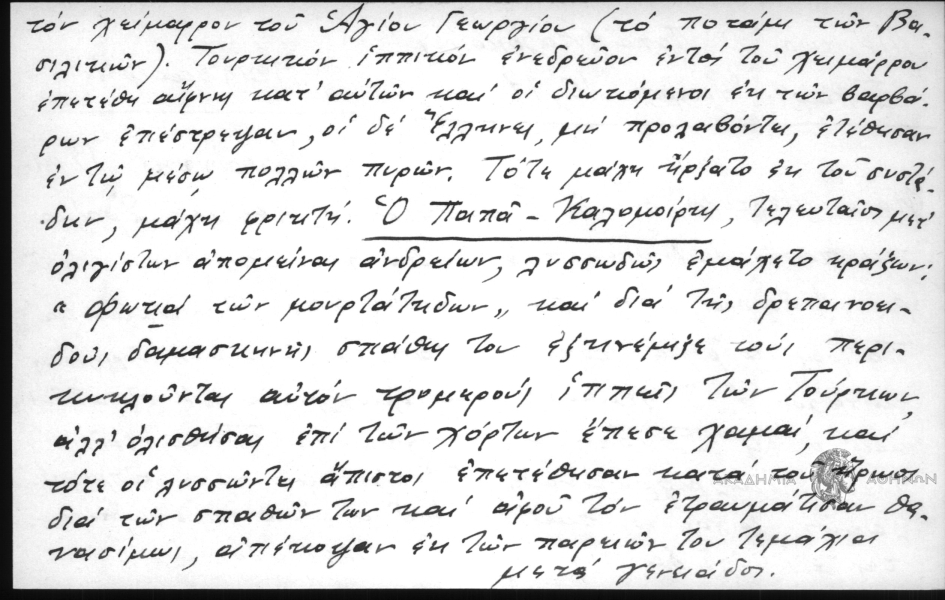 τόν χείμαρρον τοῦ Ἁγίου Γεωργίου (τό ποτάμι τῶν Βα-
σιλικῶν). Τουρκικόν ἱππικόν ἐνεδρεῦον ἐντός τοῦ χειμάρρου
ἐπετέθη αἴφνης κατ' αὐτῶν καί οἱ διωκόμενοι ἐκ τῶν βαρβά-
ρων ἐπέστρεψαν, οἱ δέ Ἕλληνες, μή προλαβόντες, ἐτέθησαν
ἐν τῷ μέσῳ πολλῶν πυρῶν. Τότε μάχη ἤρξατο ἐκ τοῦ συστά-
δην, μάχη φρικτή. Ὁ Παπᾶ-Καλομοίρης, τελευταῖος μετ'
ὀλιγίστων ἀπομείνας ἀνδρείων, λυσσωδῶς ἐμάχετο κράζων:
"φωτιά τῶν μουρτάτηδων" καί διά τῆς δρεπανοει-
δοῦς δαμασκηνῆς σπάθης του ἐξεκένωσε τούς περι-
κυκλοῦντας αὐτόν τρομερούς ἱππεῖς τῶν Τούρκων,
ἀλλ' ὀλισθήσας ἐπί τῶν χόρτων ἔπεσε χαμαί, καί
τότε οἱ λυσσῶντες ἄπιστοι ἐπετέθησαν κατά τοῦ ἥρωος
διά τῶν σπαθῶν των καί ἀφοῦ τόν ἐτραυμάτισαν θα-
νασίμως, ἀπέκοψαν ἐκ τῶν παρειῶν του τεμάχια
μετά γενειάδος.
ΑΚΑΔΗΜΙΑ ΑΘΗΝΩΝ